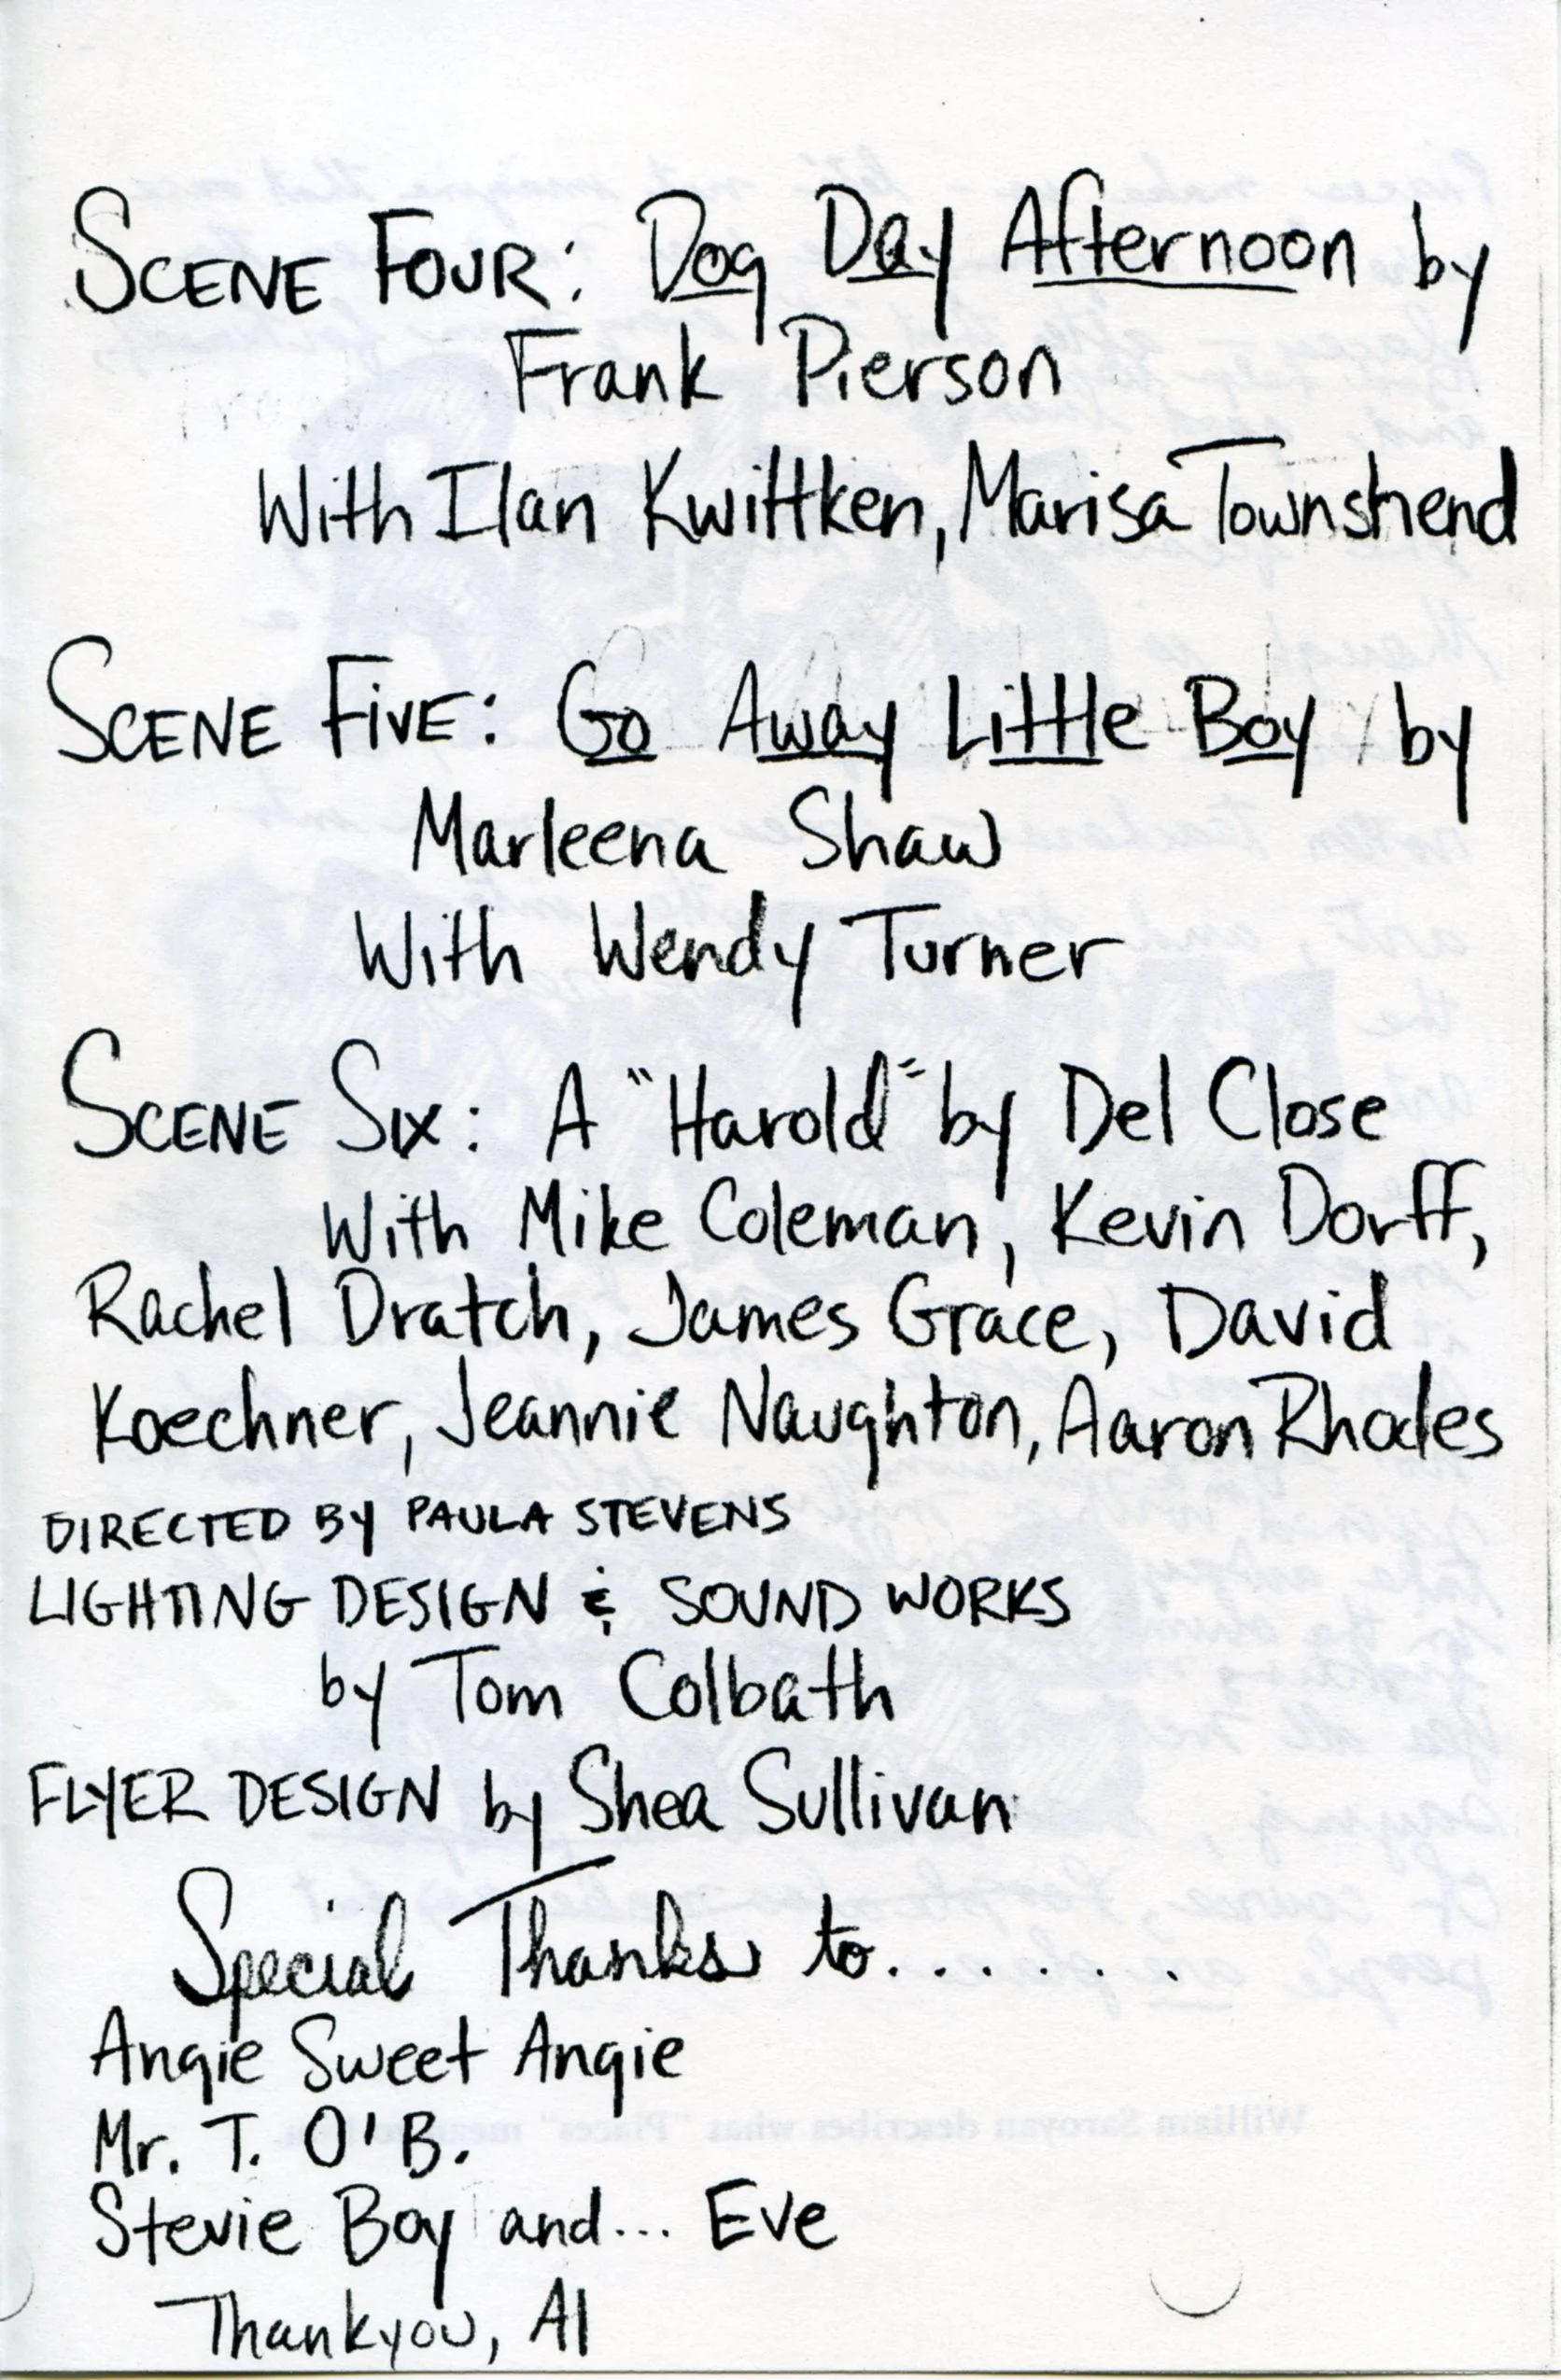 SCENE FOUR: Dog Day Afternoon by
Frank Pierson
With Ilan Kwittken, Marisa Townshend
SCENE FIVE: Go Away Little Boy by
Marleena Shaw
With Wendy Turner
SCENE SIX: A "Harold" by Del Close
With Mike Coleman, Kevin Dorff,
Rachel Dratch, James Grace, David
Koechner, Jeannie Naughton, Aaron Rhodes
DIRECTED BY PAULA STEVENS
LIGHTING DESIGN & SOUND WORKS
by Tom Colbath
FLYER DESIGN by Shea Sullivan
Special Thanks to.......
Angie Sweet Angie
Mr. T. O'B.
Stevie Boy and... Eve
Thankyou, Al
William Saroyan describes what "Places"